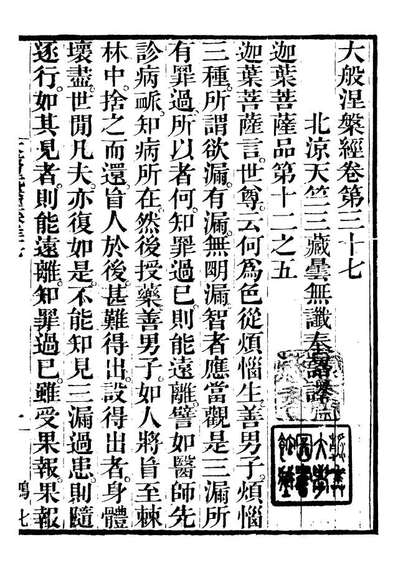 大般涅槃經卷第三十七
北涼天竺三藏曇無讖奉詔譯
迦葉菩薩品第十二之五
迦葉菩薩言。世尊。云何爲色從煩惱生。善男子。煩惱
三種。所謂欲漏有漏。無明漏。智者應當觀是三漏所
有罪過。所以者何。知罪過已則能遠離。譬如醫師先
診病脈。知病所在。然後授藥。善男子。如人將盲至棘
林中。捨之而還。盲人於後甚難得出。設得出者。身體
壞盡。世閒凡夫。亦復如是。不能知見三漏過患。則隨
逐行。如其見者。則能遠離。知罪過已。雖受果報。果報
一
鳴七